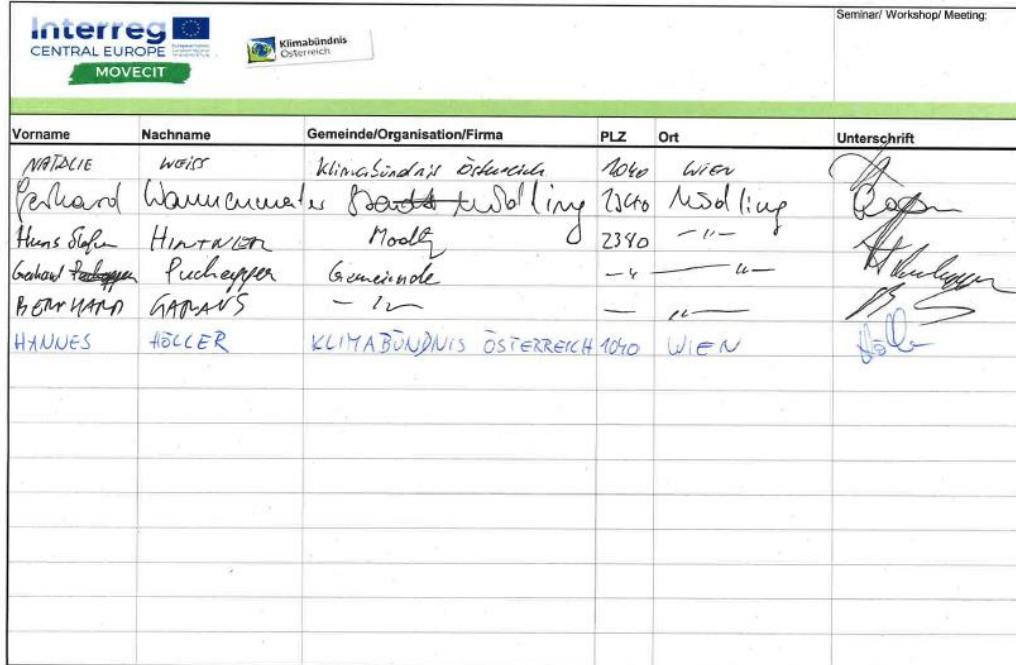 Interreg
CENTRAL EUROPE
MOVECIT
Klimabündnis
Österreich
Seminar/ Workshop/ Meeting:
Vorname Nachname Gemeinde/Organisation/Firma PLZ Ort Unterschrift
NATALIE WEISS Klimabündnis Österreich 1040 WIEN
Gerhard Wannenmacher Mödling 2340 Mödling
Hans Stefan HINTNER Mödling 2340 -"-
Gerhard Puchegger Gemeinde -"- -"-
BERNHARD GARAUS -"- -"-
HANNES HÖLLER KLIMABÜNDNIS ÖSTERREICH 1040 WIEN